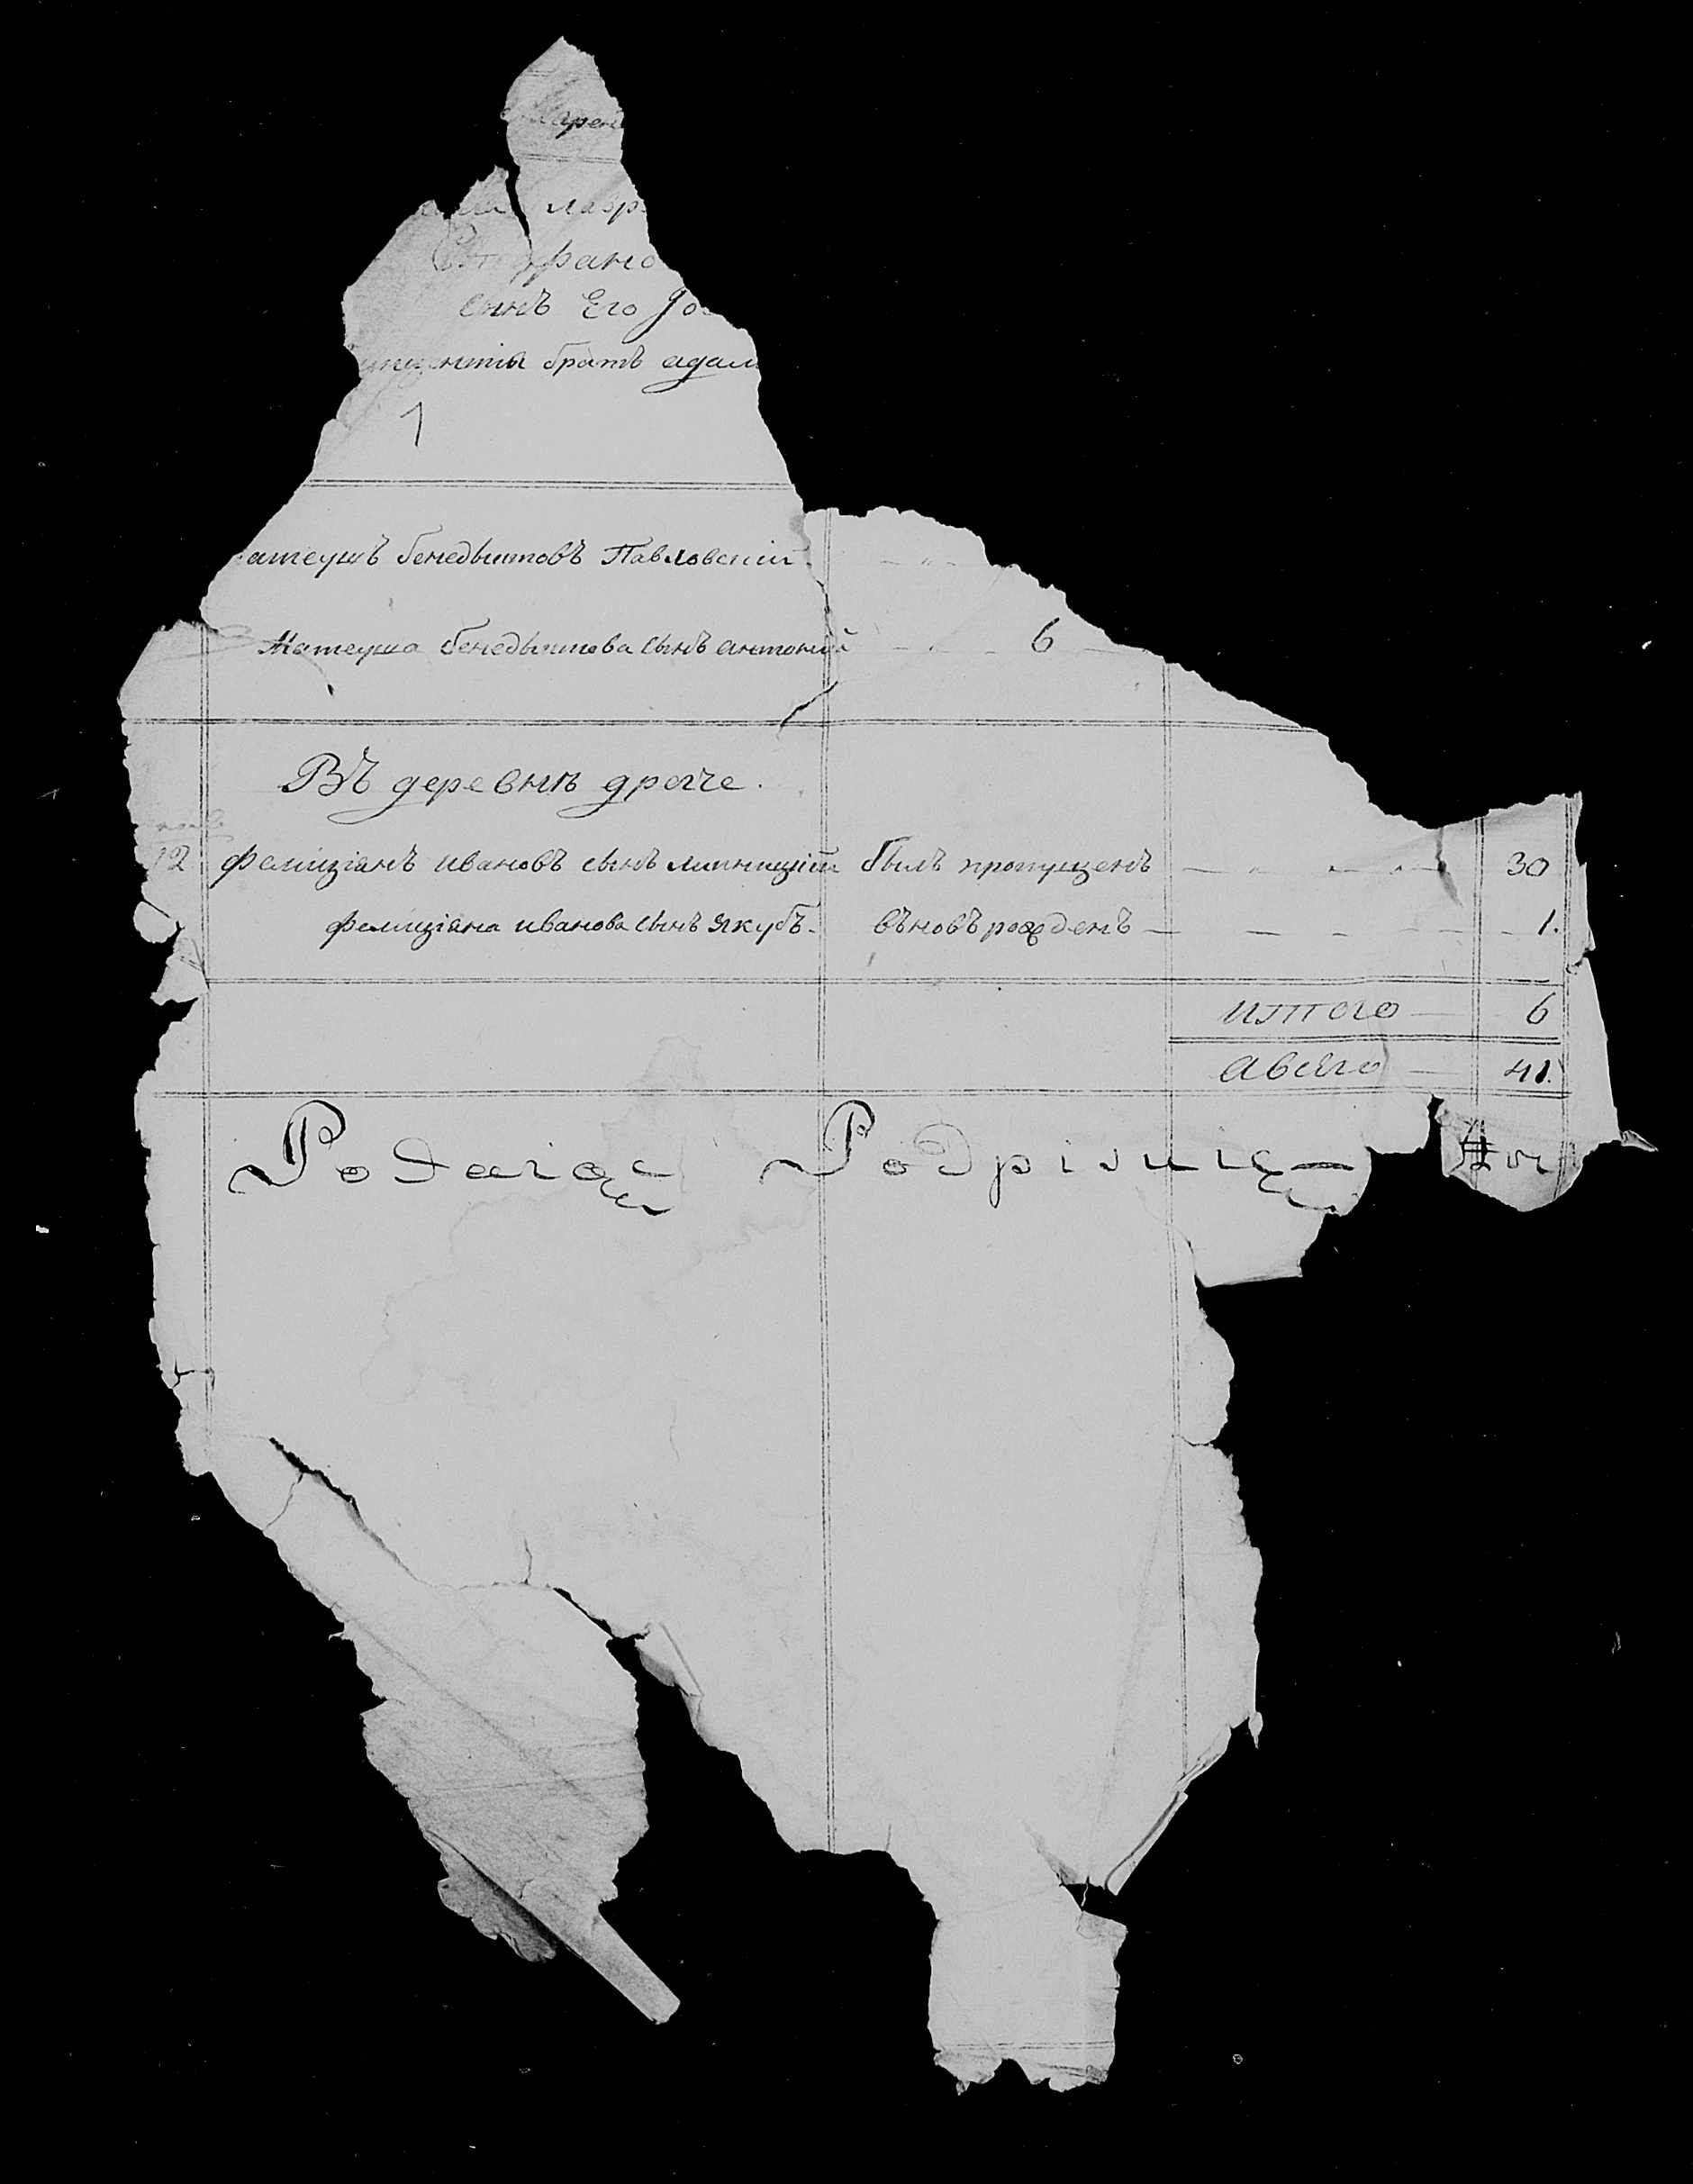 лавр
фано
сынъ Его Jо
братъ адам
1
атеушъ бенедыктовъ Павловскій
Матеуша бенедыктова сынъ антоній 6
Въ деревнѣ драче.
12 Фелиціянъ ивановъ сынъ липницкій былъ пропущенъ 30
фелиціяна иванова сынъ якубъ вновъ рожденъ 1.
итого 6
авсего 41.
Podaiąc Podpisuię